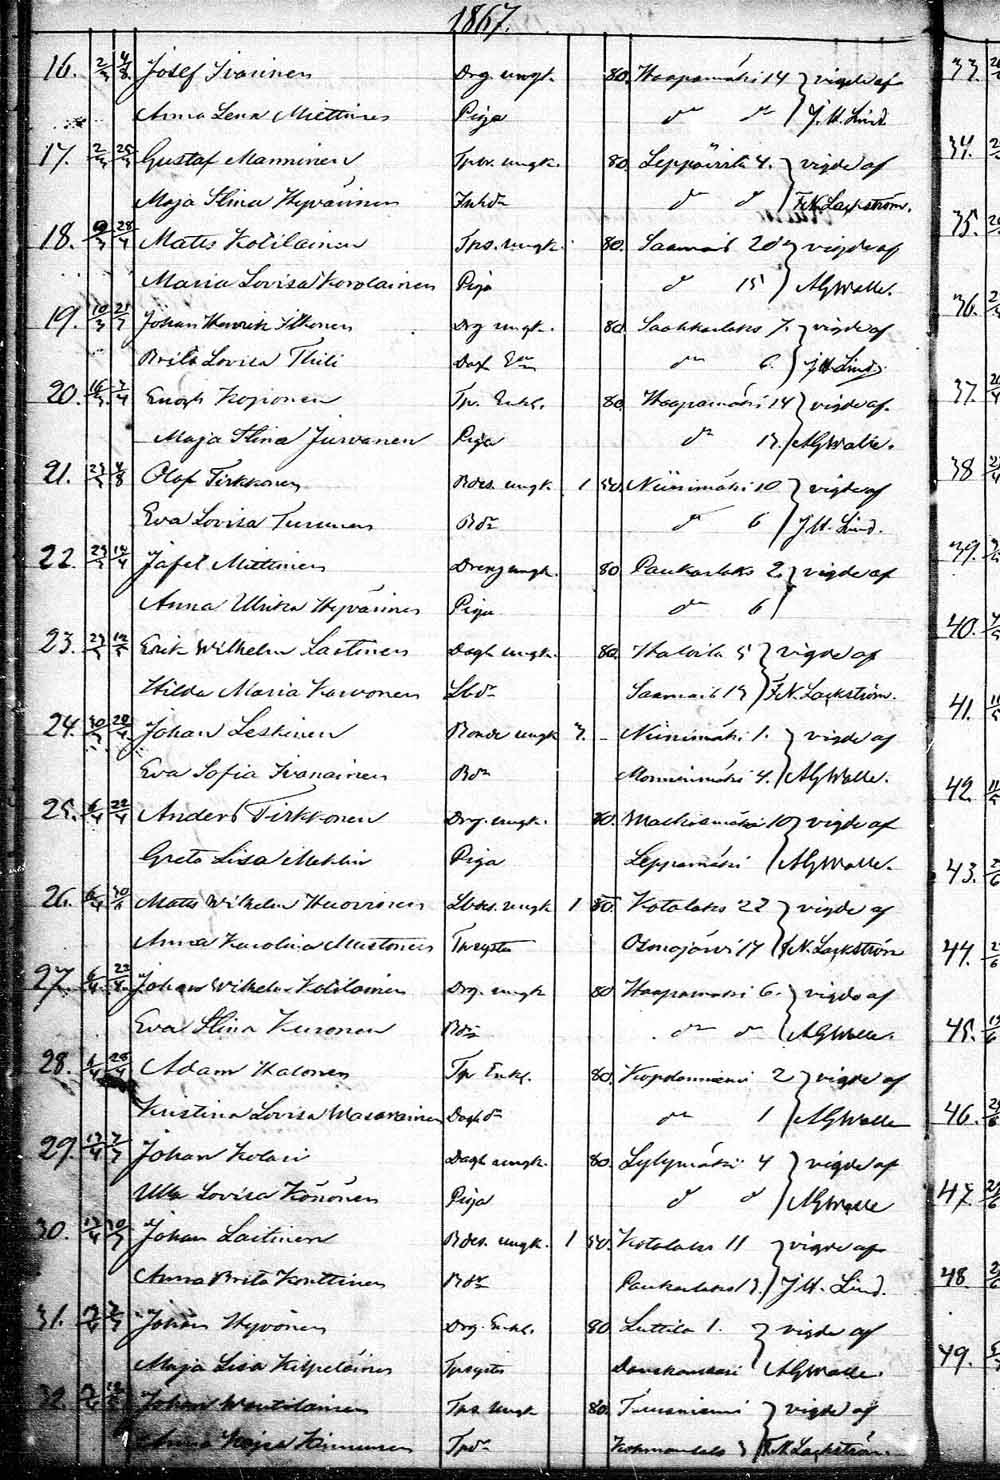 1867.
16. 2/3 4/8 Josef Ivarinen Drg. ungk. 80. Haapamäki 14 } vigde af
Anna Lena Miettinen Piga d:o d:o J. H. Lind
17. 2/3 25/3 Gustaf Manninen Tpr. ungk. 80. Leppävirta 4. } vigde af
Maja Stina Hyvärinen Inhdr d:o d:o F. N. Lackström.
18. 28/4 Matts Kotilainen Tps. ungk. 80. Saamais 20 } vigde af
Maria Lovisa Korolainen Piga d:o 15 AGWalle.
19. 10/3 Johan Henrik Silkonen Drg ungk. 80 Saahkarlaks 7. } vigde af
Brita Lovisa Thili d:o 6. J. H. Lind.
20. 7/4 Enogh Kojonen Tp. Enkl. 80 Haapamäki 14 } vigde af.
Maja Stina Jurvanen Piga d:o 13. AGWalle.
21. 4/8 Olof Tirkkonen Bdes. ungk. 1 50. Niinimäki 10 } vigde af
Eva Lovisa Turunen Bdr d:o 6 J. H. Lind.
22. 14/4 Jafet Miettinen Dreng ungk. 80 Paukarlaks 2. } vigde af
Anna Ulrika Hyvärinen Piga d:o 6
23. Erik Wilhelm Laitinen Dagk ungk. 80. Halvila 5 } vigde af
Hilda Maria Karvonen Lbdr Saamais 13 F. N. Lackström.
24. 30/3 28/4 Johan Leskinen Bonde ungk 3. - Niinimäki 1. } vigde af
Eva Sofia Ikanainen Bdr Monninmäki 4. AGWalle.
25. 6/4 22/4 Anders Tirkkonen Drg. ungk. 80. } vigde af
Greta Lisa Mehlin Piga Leppämäki AGWalle.
26. 6/4 Matts Wilhelm Huovinen Lbdes. ungk 1 80. Kotalaks 22 } vigde af
Anna Karolina Mustonen Tpsyster Osmajärvi 17 F. N. Lackström
27. 6/4 22/4 Johan Wilhelm Kotilainen Drg. ungk 80 Haapamäki 6. } vigde af
Eva Stina Kuronen Bdr d:o d:o AGWalle.
28. 6/4 28/4 Adam Halonen Tp Enkl. 80. Kopolanniemi 2 } vigde af
Kristina Lovisa Wasarainen Dagkdr d:o 1 AGWalle
29. 13/4 7/7 Johan Kolari Dagk ungk. 80. Lylymäki 4 } vigde af
Ulla Lovisa Könönen Piga d:o d:o AGWalle
30. 13/4 Johan Laitinen Bdes. ungk. 1 50. Kotalaks 11 } vigde af
Anna Brita Konttinen Bdr Paukarlaks 13. J. H. Lind.
31. Johan Hyvönen Drg. Enkl. 80 Luttila 1. } vigde af
Maja Lisa Kilpeläinen Tpsyster Danskansaari AGWalle.
32. Johan Wäntiläinen Tps ungk 80. Tuusniemi } vigde af
Anna Kajsa Kinnunen Tpdr 3 F. N. Lackström.
33.
34.
35.
36.
37.
38
39.
40.
41.
42.
43.
44.
45.
46.
47.
48.
49.